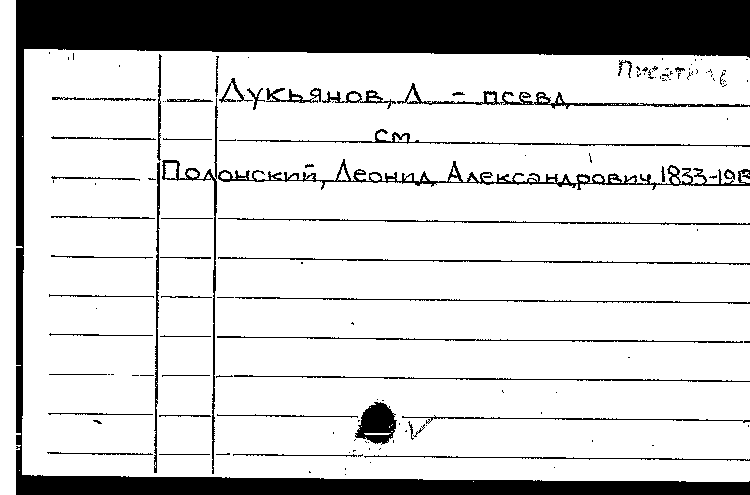 Писатель
Лукьянов, Л - псевд
см.
Полонский, Леонид Александрович, 1833-1913